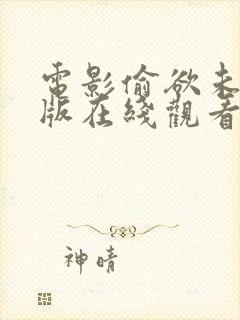 電影偷欲未
版在綫觀看
神晴